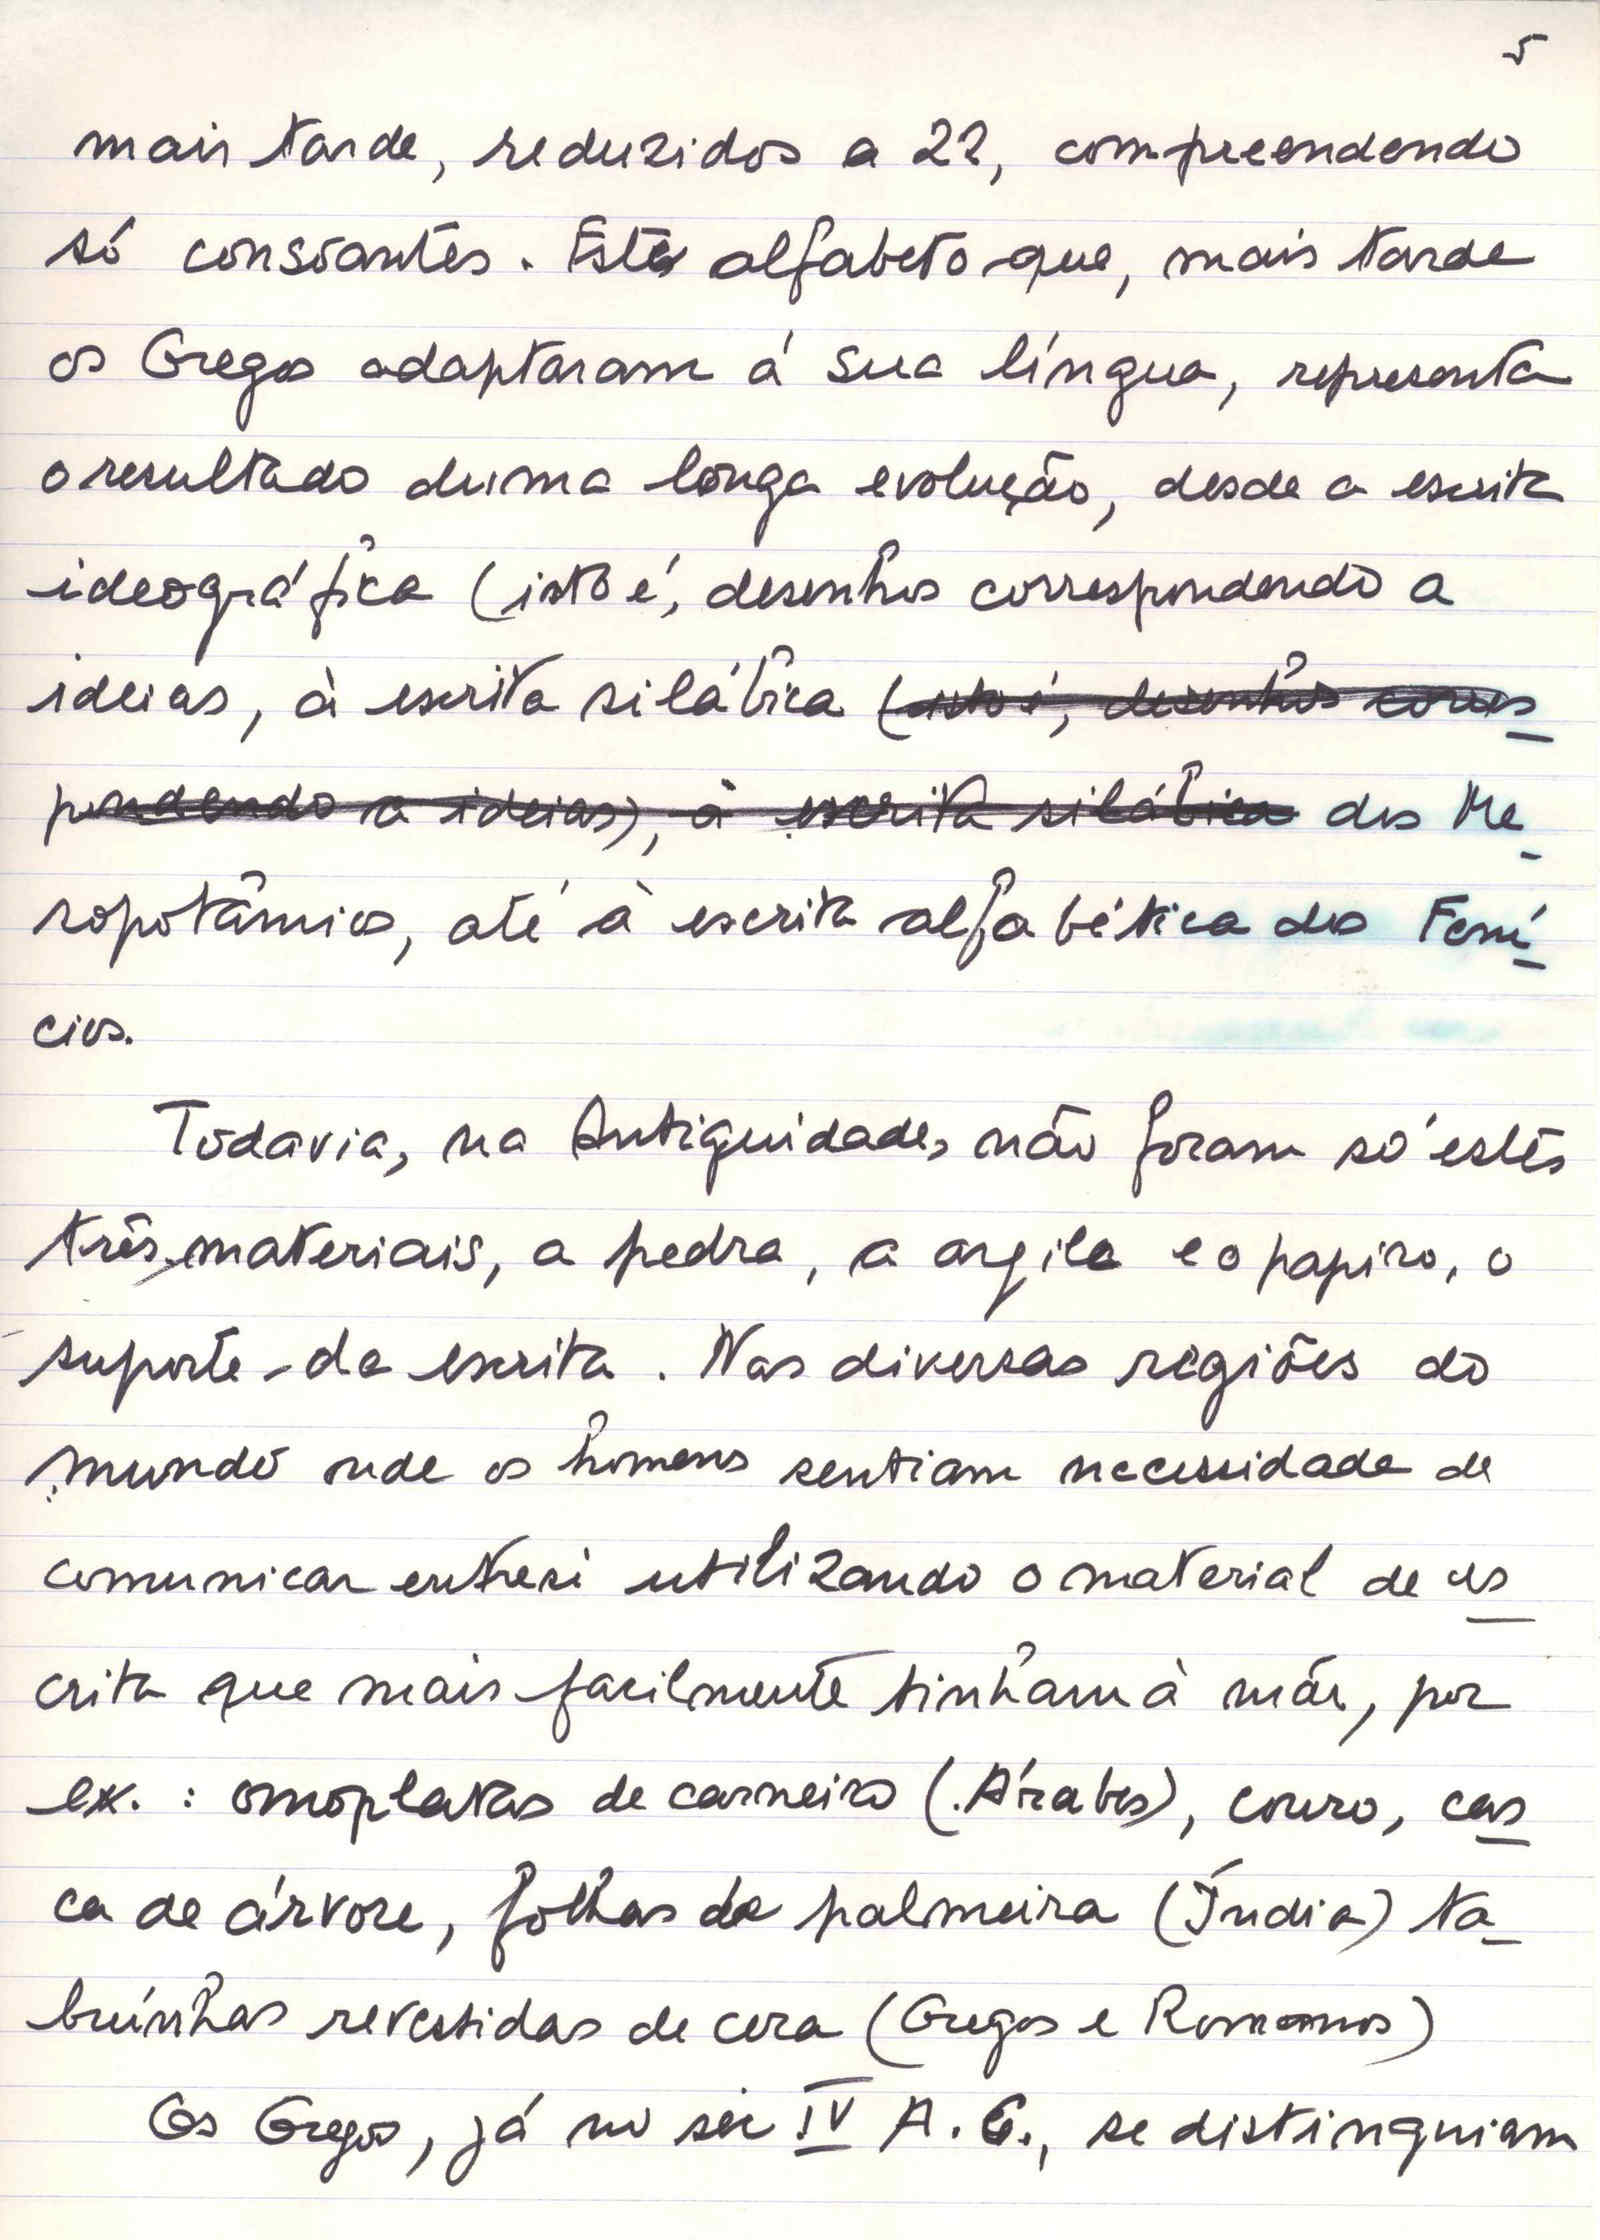 5
mais tarde, reduzidos a 22, compreendendo
só consoantes. Este alfabeto que, mais tarde
os Gregos adaptaram á sua língua, representa
o resultado duma longa evolução, desde a escrita
ideográfica (isto é, desenhos correspondendo a
ideias, à escrita silábica (isto é, desenhos corres
pondendo a ideias), à escrita silábica dos Me
sopotâmios, até à escrita alfabética dos Fení
cios.
Todavia, na Antiguidade, não foram só estes
três materiais, a pedra, a argila e o papiro, o
suporte da escrita. Nas diversas regiões do
mundo onde os homens sentiam necessidade de
comunicar entre si utilizando o material de es
crita que mais facilmente tinham à mão, por
ex. : omoplatas de carneiro (Árabes), couro, cas
ca de árvore, folhas de palmeira (Índia) ta
buínhas revestidas de cera (Gregos e Romanos)
Os Gregos, já no séc IV A. C., se distinguiam